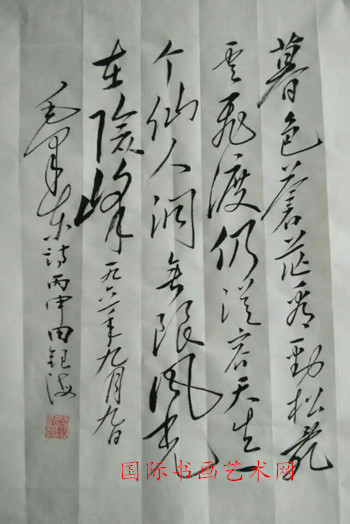 暮色蒼茫看勁松亂
雲飛渡仍從容天生一
个仙人洞無限風光
在險峰一九六一年九月九日
毛澤東詩丙申田銀海
国际书画艺术网